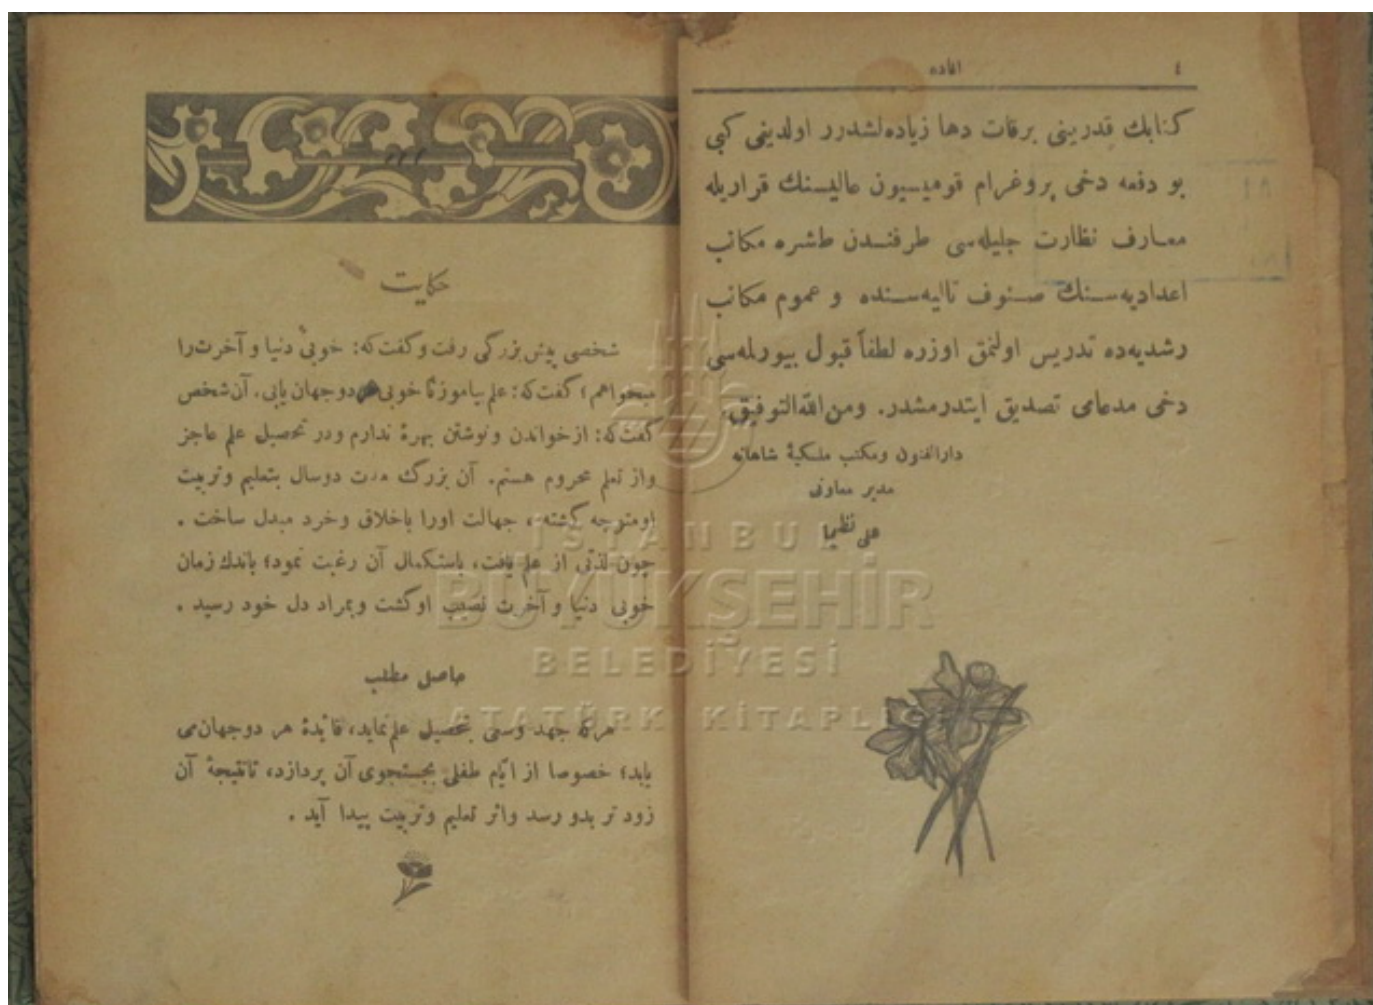 ٤
افاده
كتابك قدرينى برقات دها زياده‌لشدرر اولدينى كبى
بو دفعه دخى پروغرام قوميسيون عاليسنك قراريله
معارف نظارت جليله‌سى طرفندن طشره مكاتب
اعداديه‌سنك صنوف تاليه‌سنده و عموم مكاتب
رشديه‌ده تدريس اولنمق اوزره لطفاً قبول بيورلمه‌سى
دخى مدعامى تصديق ايتدرمشدر. ومن الله التوفيق.
دارالفنون ومكتب ملكيۀ شاهانه
مدير معاونى
على نظيما
حكايت
شخصى پيش بزرگى رفت و گفت كه: خوبئ دنيا و آخرت را
ميخواهم؛ گفت كه: علم بياموز تا خوبى هر دو جهان يابى. آن شخص
گفت كه: از خواندن و نوشتن بهرۀ ندارم ودر تحصيل علم عاجز
واز تعلم محروم هستم. آن بزرگ مدت دوسال بتعليم وتربيت
او متوجه گشته، جهالت اورا باخلاق وخرد مبدل ساخت.
چون لذتى از علم يافت، باستكمال آن رغبت نمود؛ باندك زمان
خوبى دنيا و آخرت نصيب او گشت وبمراد دل خود رسيد.
حاصل مطلب
هركه جهد وسعى بتحصيل علم نمايد، فائدۀ هر دو جهان مى
يابد؛ خصوصا از ايّام طفلى بجستجوى آن پردازد، تا نتيجۀ آن
زود تر بدو رسد واثر تعليم وتربيت پيدا آيد.
İSTANBUL
BÜYÜKŞEHİR
BELEDİYESİ
ATATÜRK KİTAPLI